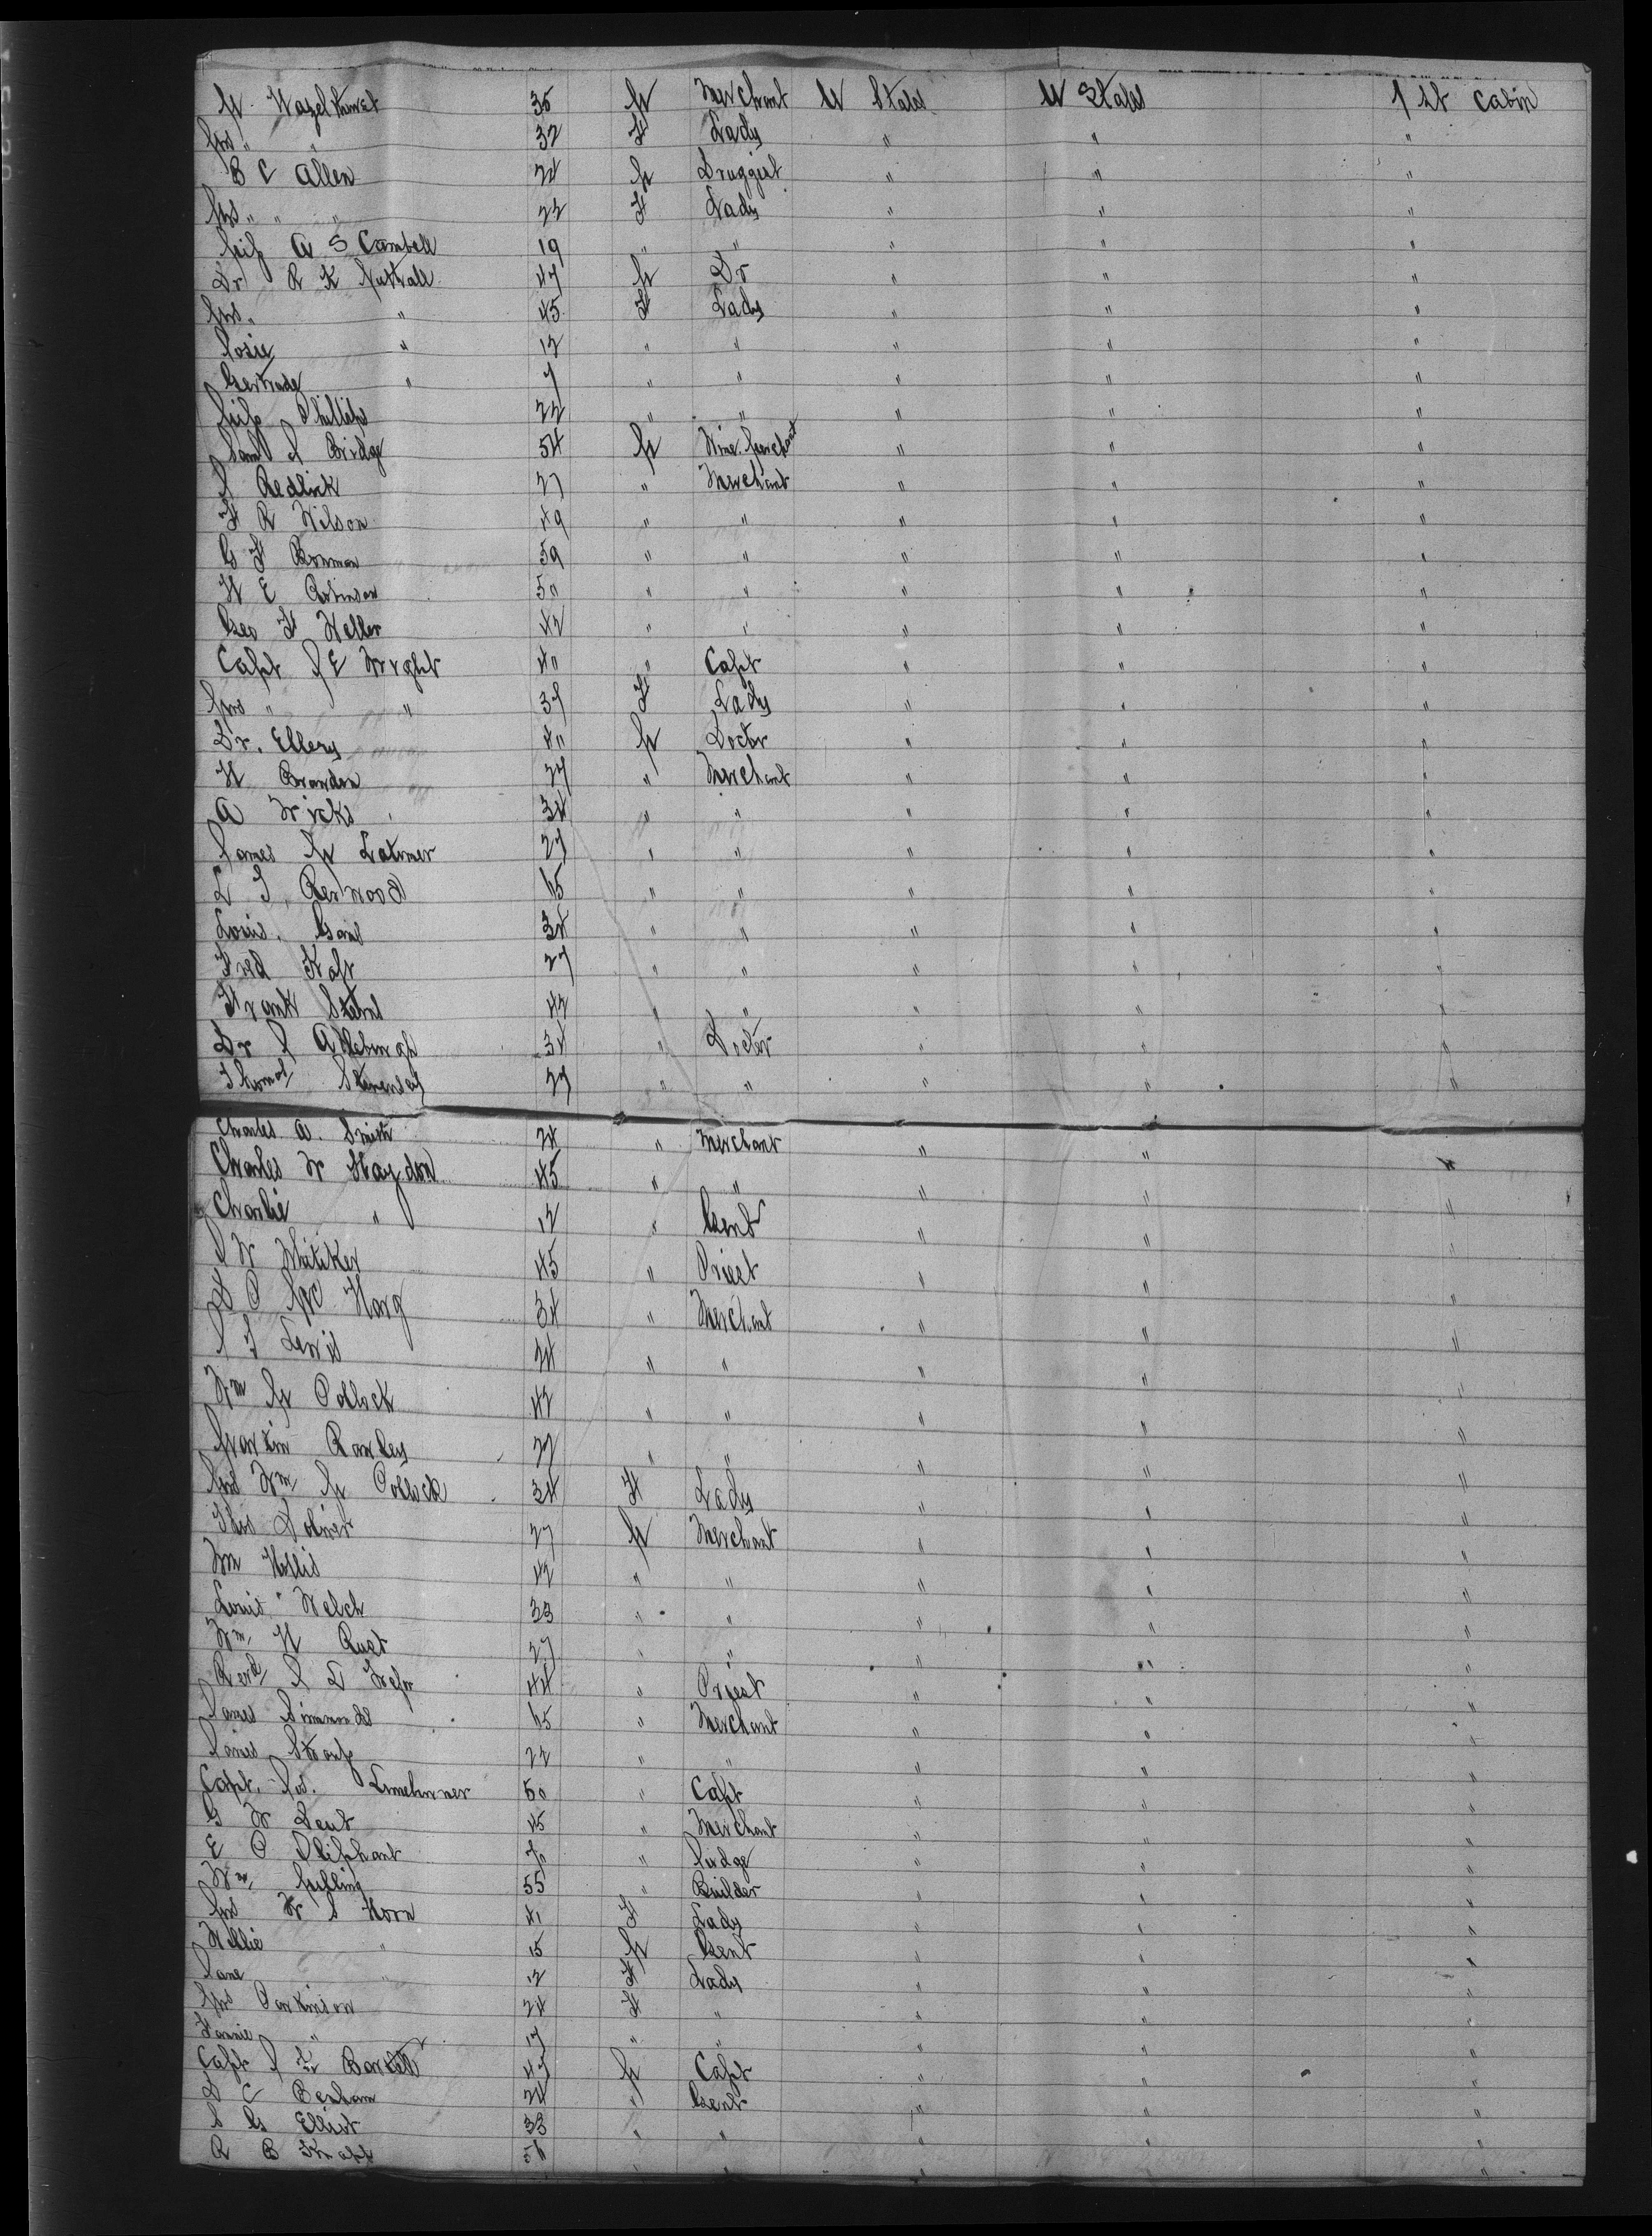 M Hazelhurst 35 M Merchant U States U States 1 st Cabin
Mrs " " 32 F Lady " " "
B C Allen 24 M Druggist " " "
Mrs " " " 22 F Lady " " "
Miss A S Cambell 19 " " " " "
Dr R K Nuttall 47 M Dr " " "
Mrs " " 45 F Lady " " "
Josie " 12 " " " " "
Gertrude " 7 " " " " "
Miss Phillips 22 " " " " "
Sam J Bridge 54 M Wine Merchant " " "
J Redlick 27 " Merchant " " "
F R Wilson 49 " " " " "
G F Bowman 59 " " " " "
W E Robinson 50 " " " " "
Geo F Weller 42 " " " " "
Capt J E Wright 40 " Capt " " "
Mrs " " 37 F Lady " " "
Dr. Ellery 40 M Doctor " " "
H Brandon 27 " Merchant " " "
A Wicks 34 " " " " "
James M Latimer 27 " " " " "
L T Redwood 65 " " " " "
Louis. Gans 34 " " " " "
Fred Kafr 27 " " " " "
Frank Stebns 42 " " " " "
Dr J Atteburgh 34 " Doctor " " "
Thomas 27 " " " " "
Charles A. Smith 24 " Merchant " " "
Charles W Haydon 45 " " " " "
Charlie " 12 " Gent " " "
J W Whitiker 45 " Priest " " "
H P Mc Harg 34 " Merchant " " "
J F Lewis 24 " " " " "
Wm M Pollock 42 " " " " "
Martin Rowley 27 " " " " "
Mrs Wm M Pollock 34 F Lady " " "
Thos Doliver 27 M Merchant " " "
Wm Hollis 42 " " " " "
Louis Welch 33 " " " " "
Wm. H Rust 27 " " " " "
Revd J D 44 " Priest " " "
James Simmonds 65 " Merchant " " "
James Sharp 22 " " " " "
Capt. Jos. Limeburner 50 " Capt " " "
G W Dent 45 " Merchant " " "
E P Oliphant 70 " Judge " " "
Wm. Mulling 55 " Builder " " "
Mrs W S Horn 41 F Lady " " "
Willie " 15 M Gent " " "
Jane " 12 F Lady " " "
Mrs Parkinson 24 F " " " "
Fannie " 17 " " " " "
Capt J F Bartlett 47 M Capt " " "
D C Benham 24 " Gent " " "
S G Elliot 33 " " " " "
R B Knapp 56 " " " " "